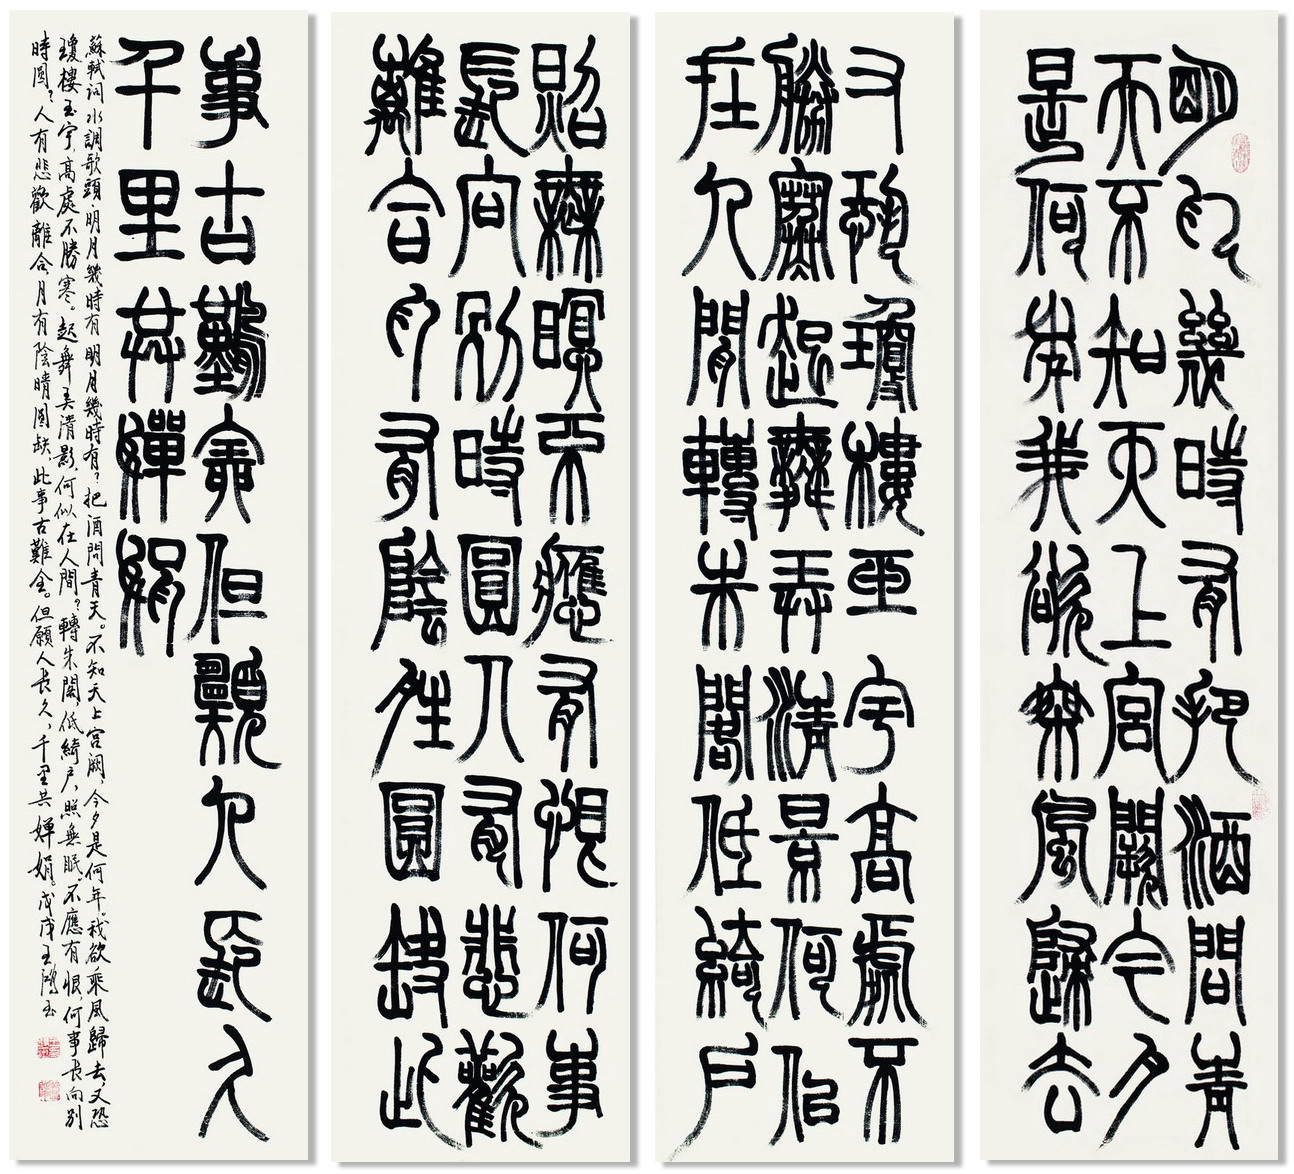 明月幾時有把酒問青
天不知天上宮闕今夕
是何年我欲乘風歸去
又恐瓊樓玉宇高處不
勝寒起舞弄清景何佀
在人間轉朱閣低綺戶
照無瞑不應有恨何事
長向別時圓人有悲歡
離合月有陰晴圓缺此
事古難全但願人長久
千里共嬋娟
蘇軾詞水調歌頭·明月幾時有 明月幾時有？把酒問青天。不知天上宮闕，今夕是何年。我欲乘風歸去，又恐
瓊樓玉宇，高處不勝寒。起舞弄清影，何似在人間？轉朱閣，低綺戶，照無眠。不應有恨，何事長向別
時圓？人有悲歡離合，月有陰晴圓缺，此事古難全。但願人長久，千里共嬋娟。戊戌王鴻玉